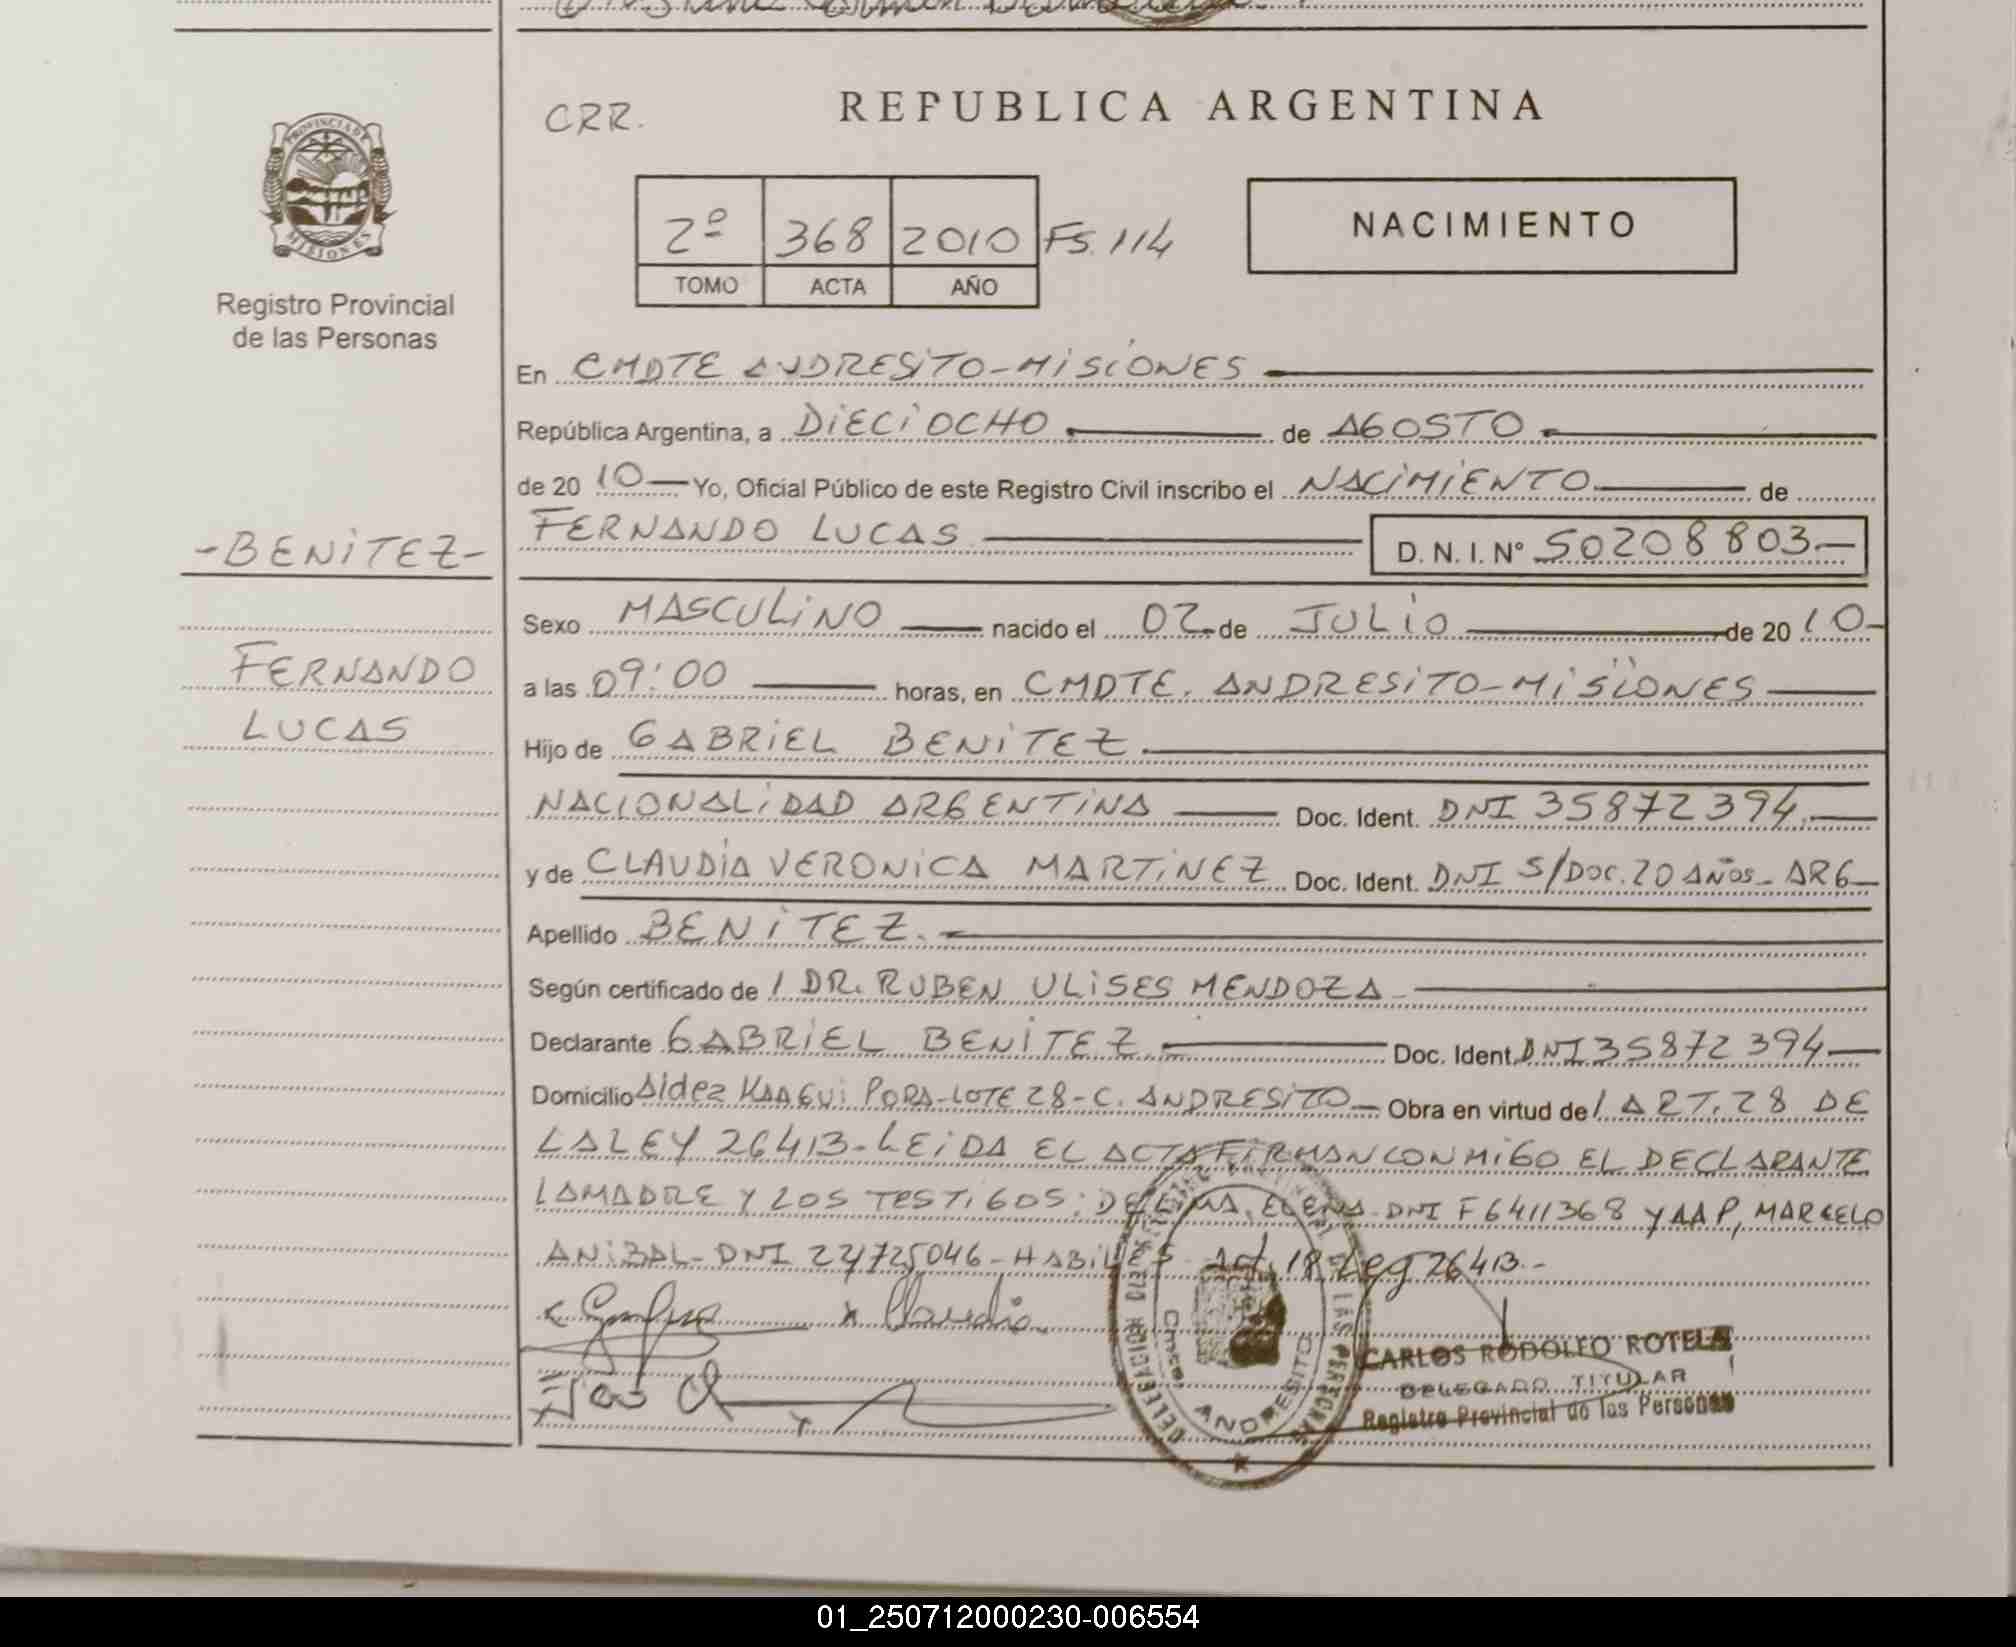 REPUBLICA ARGENTINA
CRR.
PROVINCIA DE
MISIONES
Registro Provincial
de las Personas
2º 368 2010 FS. 114
TOMO ACTA AÑO
NACIMIENTO
En CMDTE ANDRESITO-MISIONES
República Argentina, a DIECIOCHO de AGOSTO
de 20 10 Yo, Oficial Público de este Registro Civil inscribo el NACIMIENTO de
-BENITEZ-
FERNANDO LUCAS D. N. I. N° 50208803
Sexo MASCULINO nacido el 02 de JULIO de 20 10
FERNANDO
LUCAS
a las 09:00 horas, en CMDTE. ANDRESITO-MISIONES
Hijo de GABRIEL BENITEZ
NACIONALIDAD ARGENTINA Doc. Ident. DNI 35872394
y de CLAUDIA VERONICA MARTINEZ Doc. Ident. DNI S/DOC. 20 AÑOS- ARG
Apellido BENITEZ.
Según certificado de / DR. RUBEN ULISES MENDOZA
Declarante GABRIEL BENITEZ Doc. Ident. DNI 35872394
Domicilio Aldea KAAGUI PORA-LOTE 28-C. ANDRESITO Obra en virtud de / ART. 28 DE
LA LEY 26413-LEIDA EL ACTA FIRMAN CONMIGO EL DECLARANTE
LA MADRE Y LOS TESTIGOS: DE LIMA, ELENA-DNI F6411368 Y
MARCELO
ANIBAL-DNI 22725046- Art. 18 Ley 26413.-
x x Claudia
CARLOS RODOLFO ROTELA
DELEGADO TITULAR
Registro Provincial de las Personas
ANDRESITO
01_250712000230-006554